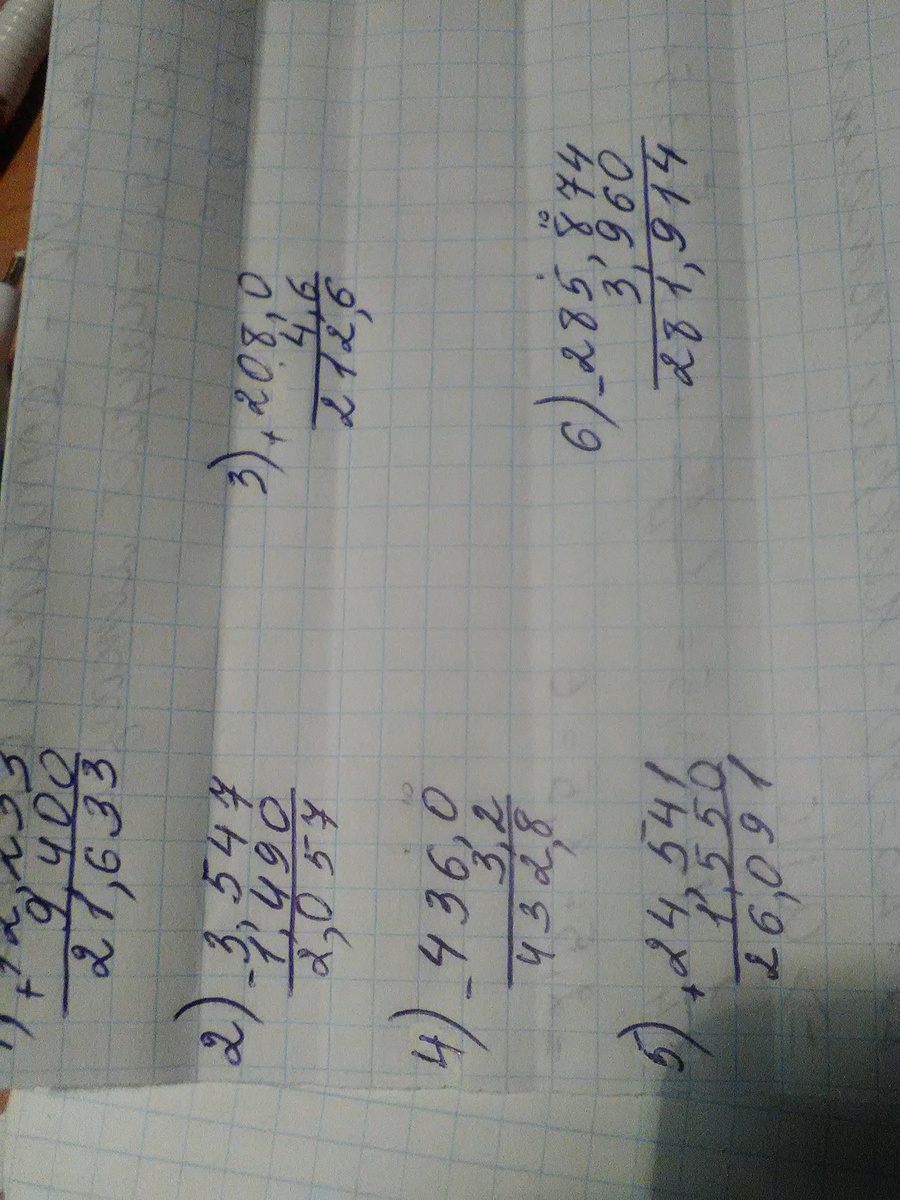 + 12,233
9,400
21,633
2) - 3,547
1,490
2,057
3) + 208,0
4,6
212,6
4) - 436,0
3,2
432,8
5) + 24,541
1,550
26,091
6) - 285,874
3,960
281,914